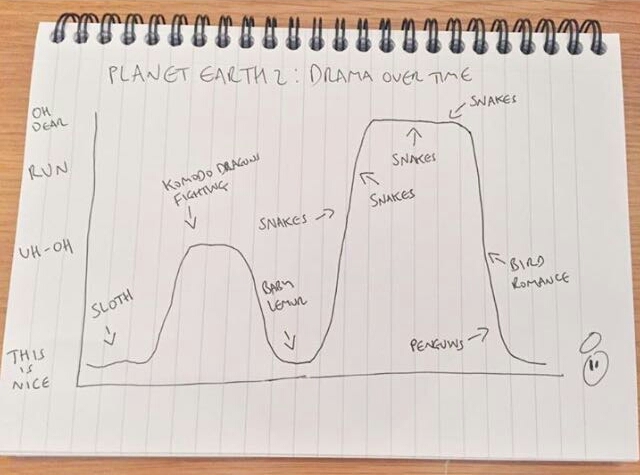 PLANET EARTH 2: DRAMA OVER TIME
OH
DEAR
RUN
UH-OH
THIS
IS
NICE
SLOTH
KOMODO DRAGONS
FIGHTING
BABY
LEMUR
SNAKES
SNAKES
SNAKES
SNAKES
BIRD
ROMANCE
PENGUINS